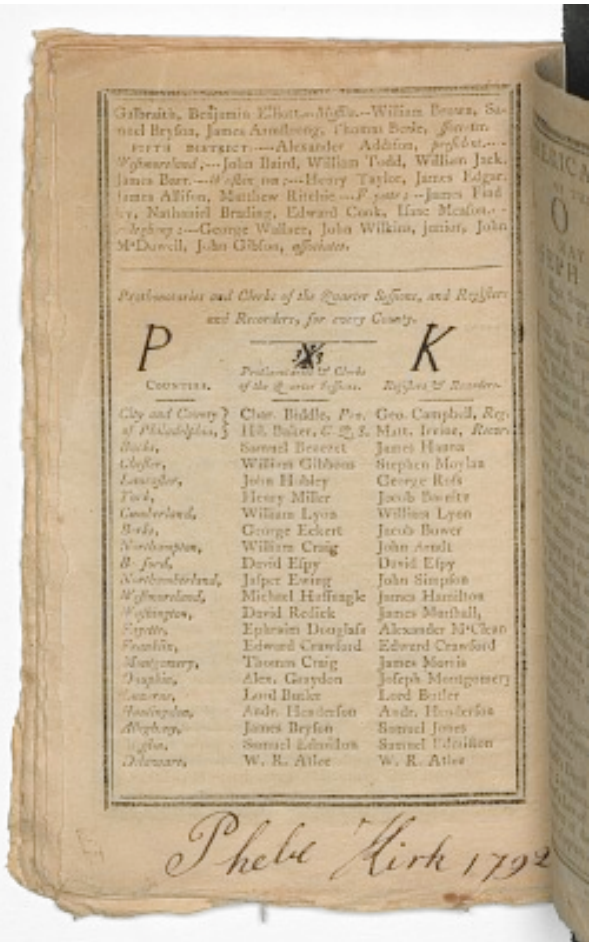 Galbraith, Benjamin Elliott.—Mifflin.—William Brown, Sa-
muel Bryson, James Armstrong, Thomas Beale, associates.
FIFTH DISTRICT:—Alexander Addison, president.—
Westmoreland,—John Baird, William Todd, William Jack,
James Barr.—Henry Taylor, James Edgar,
James Allison, Matthew Ritchie.—Fayette;—James Find
ley, Nathaniel Brading, Edward Cook, Isaac Meason.—
Allegheny:—George Wallace, John Wilkins, junior, John
M'Dowell, John Gibson, associates.
Prothonotaries and Clerks of the Quarter Sessions, and Registers
and Recorders, for every County.
P K
COUNTIES. Prothonotaries & Clerks of the Quarter Sessions. Registers & Recorders.
City and County Char. Biddle, Pro. Geo. Campbell, Reg.
of Philadelphia, Hil. Baker, C. Q. S. Matt. Irwine, Recor.
Bucks, Samuel Benezet James Hanna
Chester, William Gibbons Stephen Moylan
Lancaster, John Hubley George Ross
York, Henry Miller Jacob Barnitz
Cumberland, William Lyon William Lyon
Berks, George Eckert Jacob Bower
Northampton, William Craig John Arndt
Bedford, David Espy David Espy
Northumberland, Jasper Ewing John Simpson
Westmoreland, Michael Huffnagle James Hamilton
Washington, David Redick James Marshall,
Fayette, Ephraim Douglass Alexander M'Clean
Franklin, Edward Crawford Edward Crawford
Montgomery, Thomas Craig James Morris
Dauphin, Alex. Graydon Joseph Montgomery
Luzerne, Lord Butler Lord Butler
Huntingdon, Andr. Henderson Andr. Henderson
Allegheny, James Bryson Samuel Jones
Mifflin, Samuel Edmiston Samuel Edmiston
Delaware, W. R. Atlee W. R. Atlee
Phebe Kirk 1792